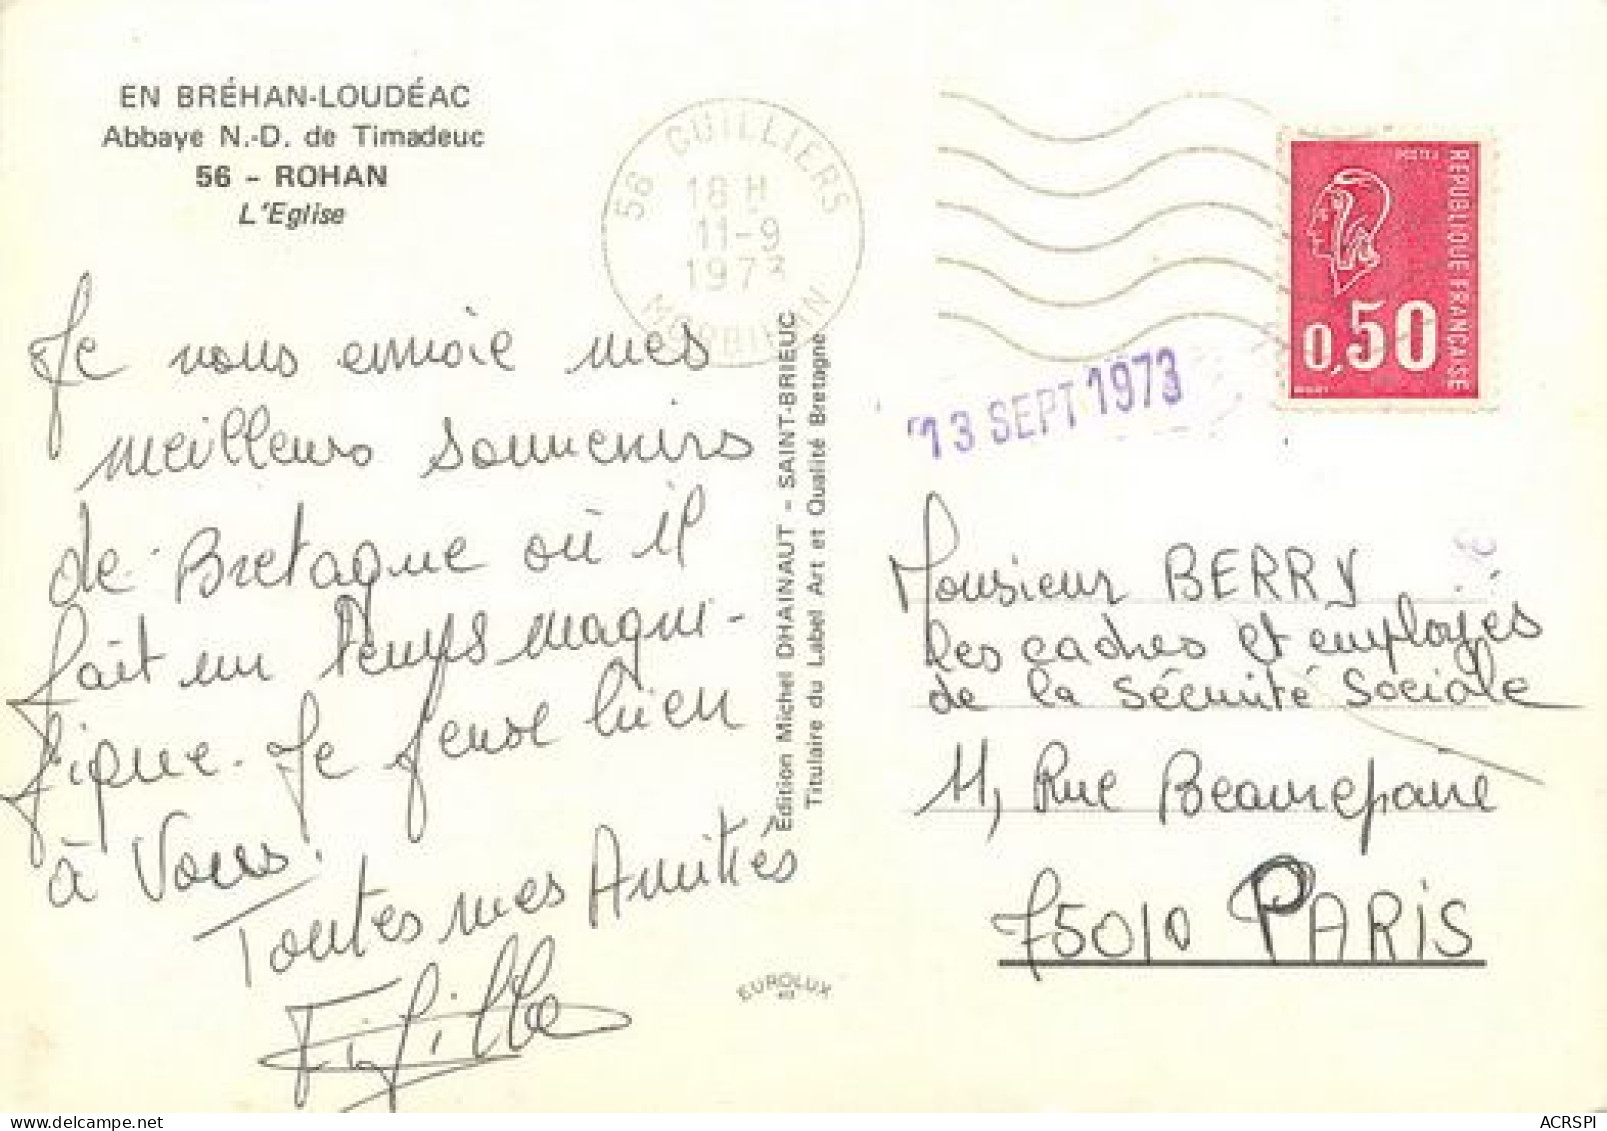 EN BRÉHAN-LOUDÉAC
Abbaye N.-D. de Timadeuc
56 - ROHAN
L'Eglise
Je vous envoie mes
meilleurs souvenirs
de Bretagne où il
fait un temps magni-
fique. Je pense bien
à Vous.
Toutes mes Amitiés
56 GUILLIERS
18 H
11-9
1973
MORBIHAN
Edition Michel DHAINAUT - SAINT-BRIEUC
Titulaire du Label Art et Qualité Bretagne
EUROLUX
POSTES
REPUBLIQUE FRANÇAISE
0,50
13 SEPT 1973
Monsieur BERRY
les cadres et employés
de la Sécurité Sociale
11, Rue Beaurepaire
75010 PARIS
ACRSPI